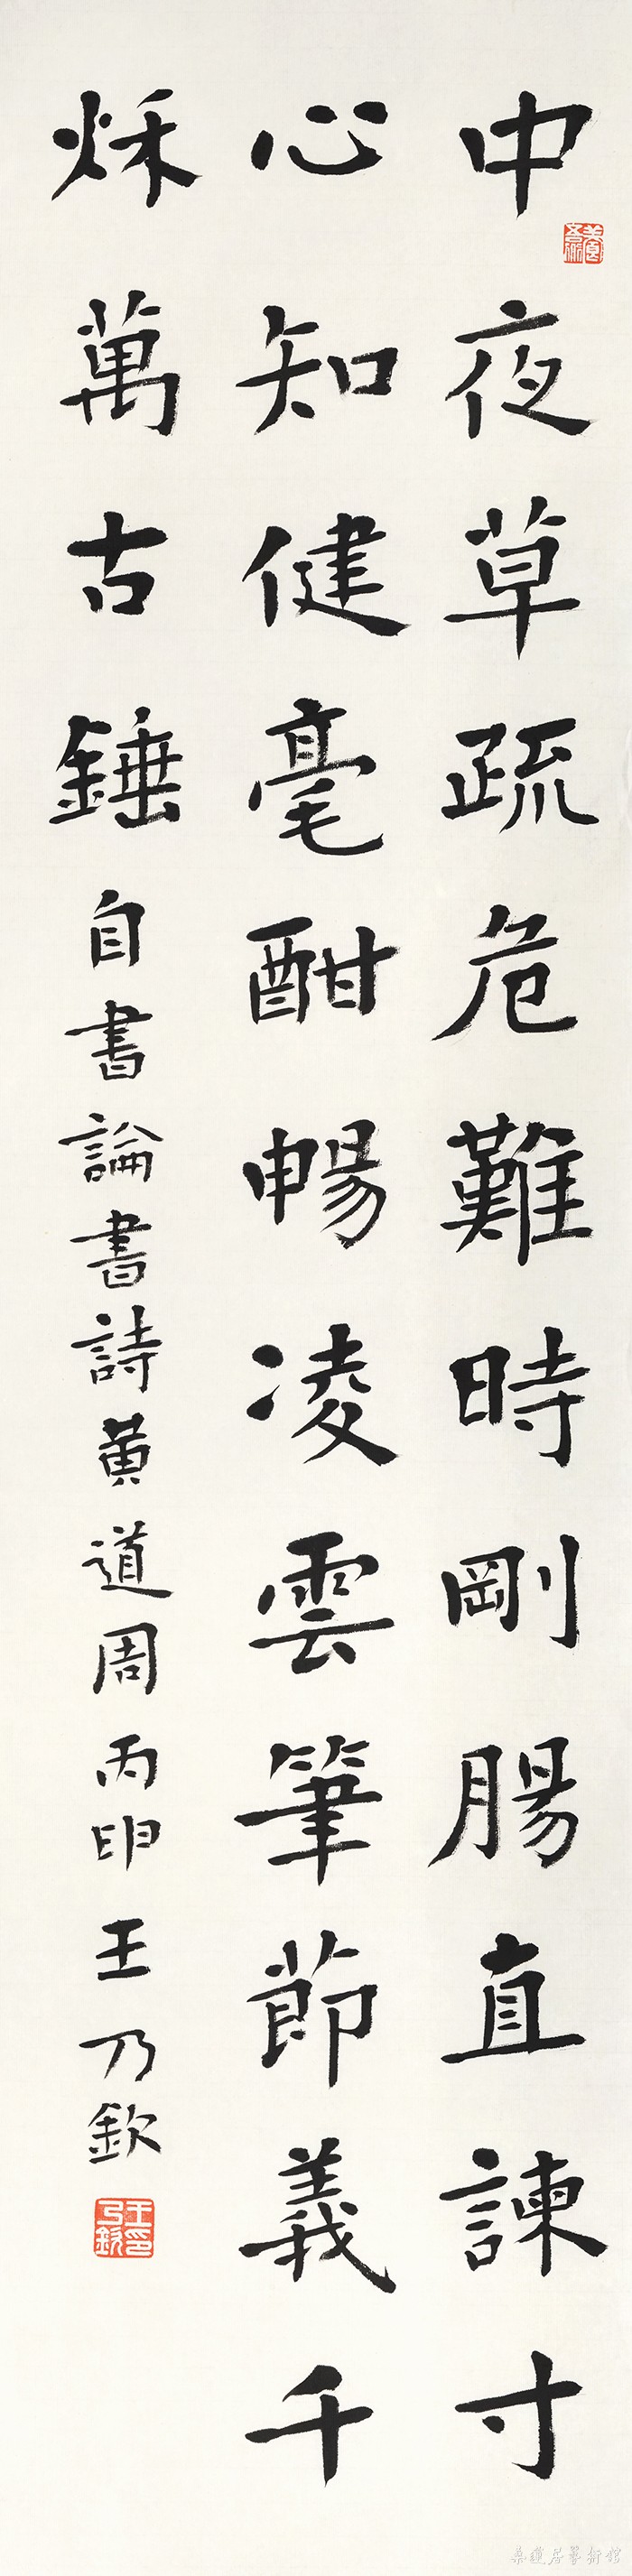 中夜草疏危難時剛腸直諫寸
心知健毫酣暢凌雲筆節義千
秌萬古錘自書論書詩黃道周丙申王乃欽
王乃欽印